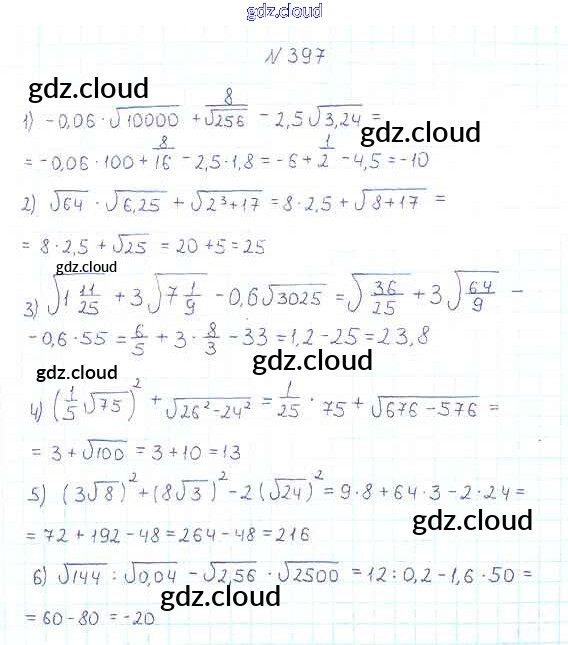 gdz.cloud
N 397
gdz.cloud gdz.cloud
1) -0,06 · √10000 + 8/√256 - 2,5√3,24 =
gdz.cloud
= -0,06 · 100 + 8/16 - 2,5 · 1,8 = -6 + 1/2 - 4,5 = -10
2) √64 · √6,25 + √2³+17 = 8 · 2,5 + √8+17 =
= 8 · 2,5 + √25 = 20 + 5 = 25
gdz.cloud
3) √1 11/25 + 3√7 1/9 - 0,6√3025 = √36/25 + 3√64/9 -
- 0,6 · 55 = 6/5 + 3 · 8/3 - 33 = 1,2 - 25 = 23,8
gdz.cloud gdz.cloud
4) (1/5 √75)² + √26²-24² = 1/25 · 75 + √676-576 =
= 3 + √100 = 3 + 10 = 13
5) (3√8)² + (8√3)² - 2(√24)² = 9 · 8 + 64 · 3 - 2 · 24 =
gdz.cloud
= 72 + 192 - 48 = 264 - 48 = 216
6) √144 : √0,04 - √2,56 · √2500 = 12 : 0,2 - 1,6 · 50 =
gdz.cloud
= 60 - 80 = -20